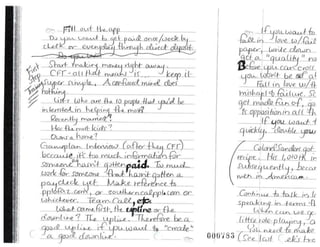 ~ Fill out the app
Do you want to get paid once/week by
check or everyday through direct deposit.
Start making money right away.
CFT - all that means is... keep it
Super simple. A confused mind does
nothing.
Fast Step Towards
List Who are the 10 people that you'd be
interested in helping the most?
Recently married?
Has the most kids?
Own a home?
Gameplan Interview (after they CFT)
because it's too much information for
someone hasn't gotten paid. Too much
work for someone that hasn't gotten a
paycheck yet. Make reference to
.com, or southerncalifprism or
whatever. Team Call, etc.
What comes first, the upline or the
downline? The upline. Therefore be a
good upline if you want to "create"
a good downline.
~ If you want to
fall in love w/
paper, write down
get a "quality" no
Before you can cross
you won't be
Fall in love w/ th
mishaps & failure. So
get made fun of,
to opposition in all th
If you want t
quickly, double your
Colonel Sanders got
recipe. His 1,009th
Subsequently, beca
men in America
Continue to talk in t
speaking in terms
When can we g
little role playing, a
You need to make
(See list) let's tr
000783